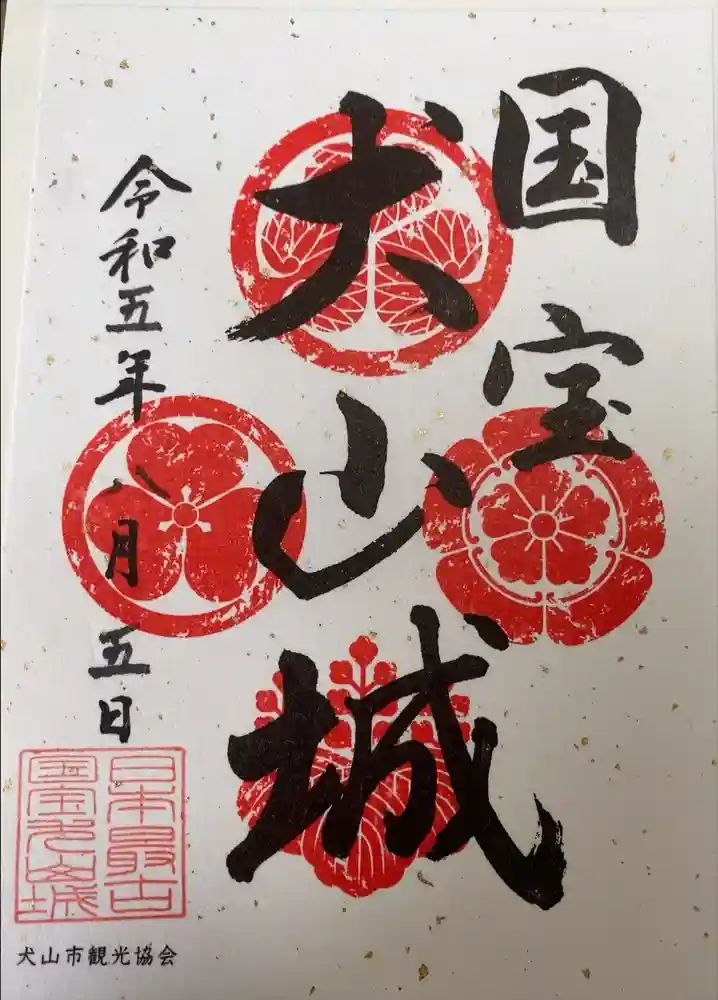 国宝
犬山城
令和五年八月五日
日本最古
国宝犬山城
犬山市観光協会